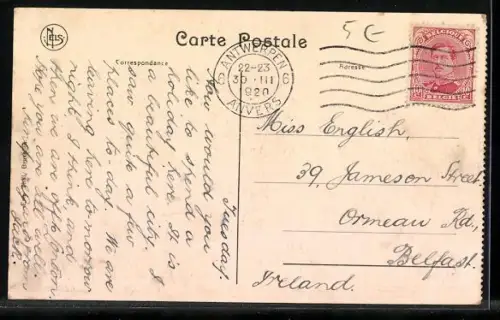 NELS
Carte Postale
5 E
Correspondance
Adresse
6 ANTWERPEN 6
22-23
30 · III
1920
ANVERS
BELGIQUE
BELGIË
Tuesday.
How would you
like to spend a
holiday here. It is
a beautiful city. I
saw quite a few
places to-day. We are
here to-morrow
night, I think, and
then we are off to
Hope you are all well.
Miss English,
39, Jameson Street,
Ormeau Rd.,
Belfast.
Ireland.